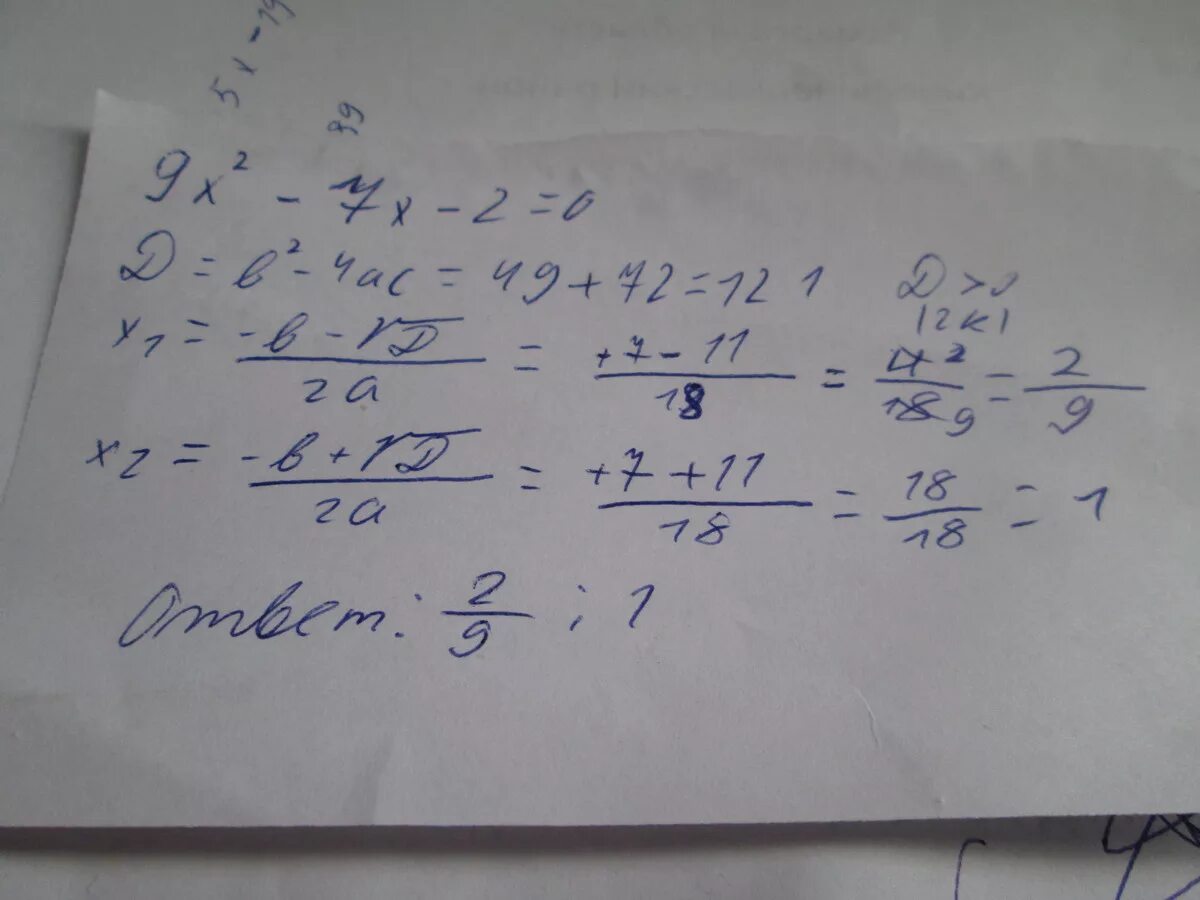 5x-19
99
9x² - 7x - 2 = 0
D = в² - 4ac = 49 + 72 = 121 D > 0
x₁ = (-в - √D)/(2a) = (+7 - 11)/18 = 4 2/18 9 = 2/9
x₂ = (-в + √D)/(2a) = (+7 + 11)/18 = 18/18 = 1
Ответ: 2/9 ; 1